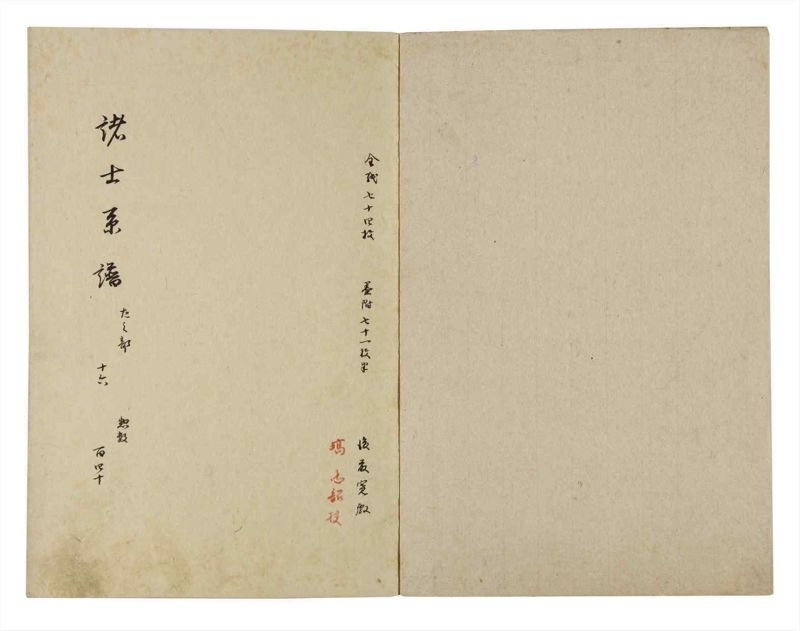 全紙七十四枚 墨附七十一枚半
後藤寛
塙忠韶校
諸士系譜
た之部
十六
惣数
百四十